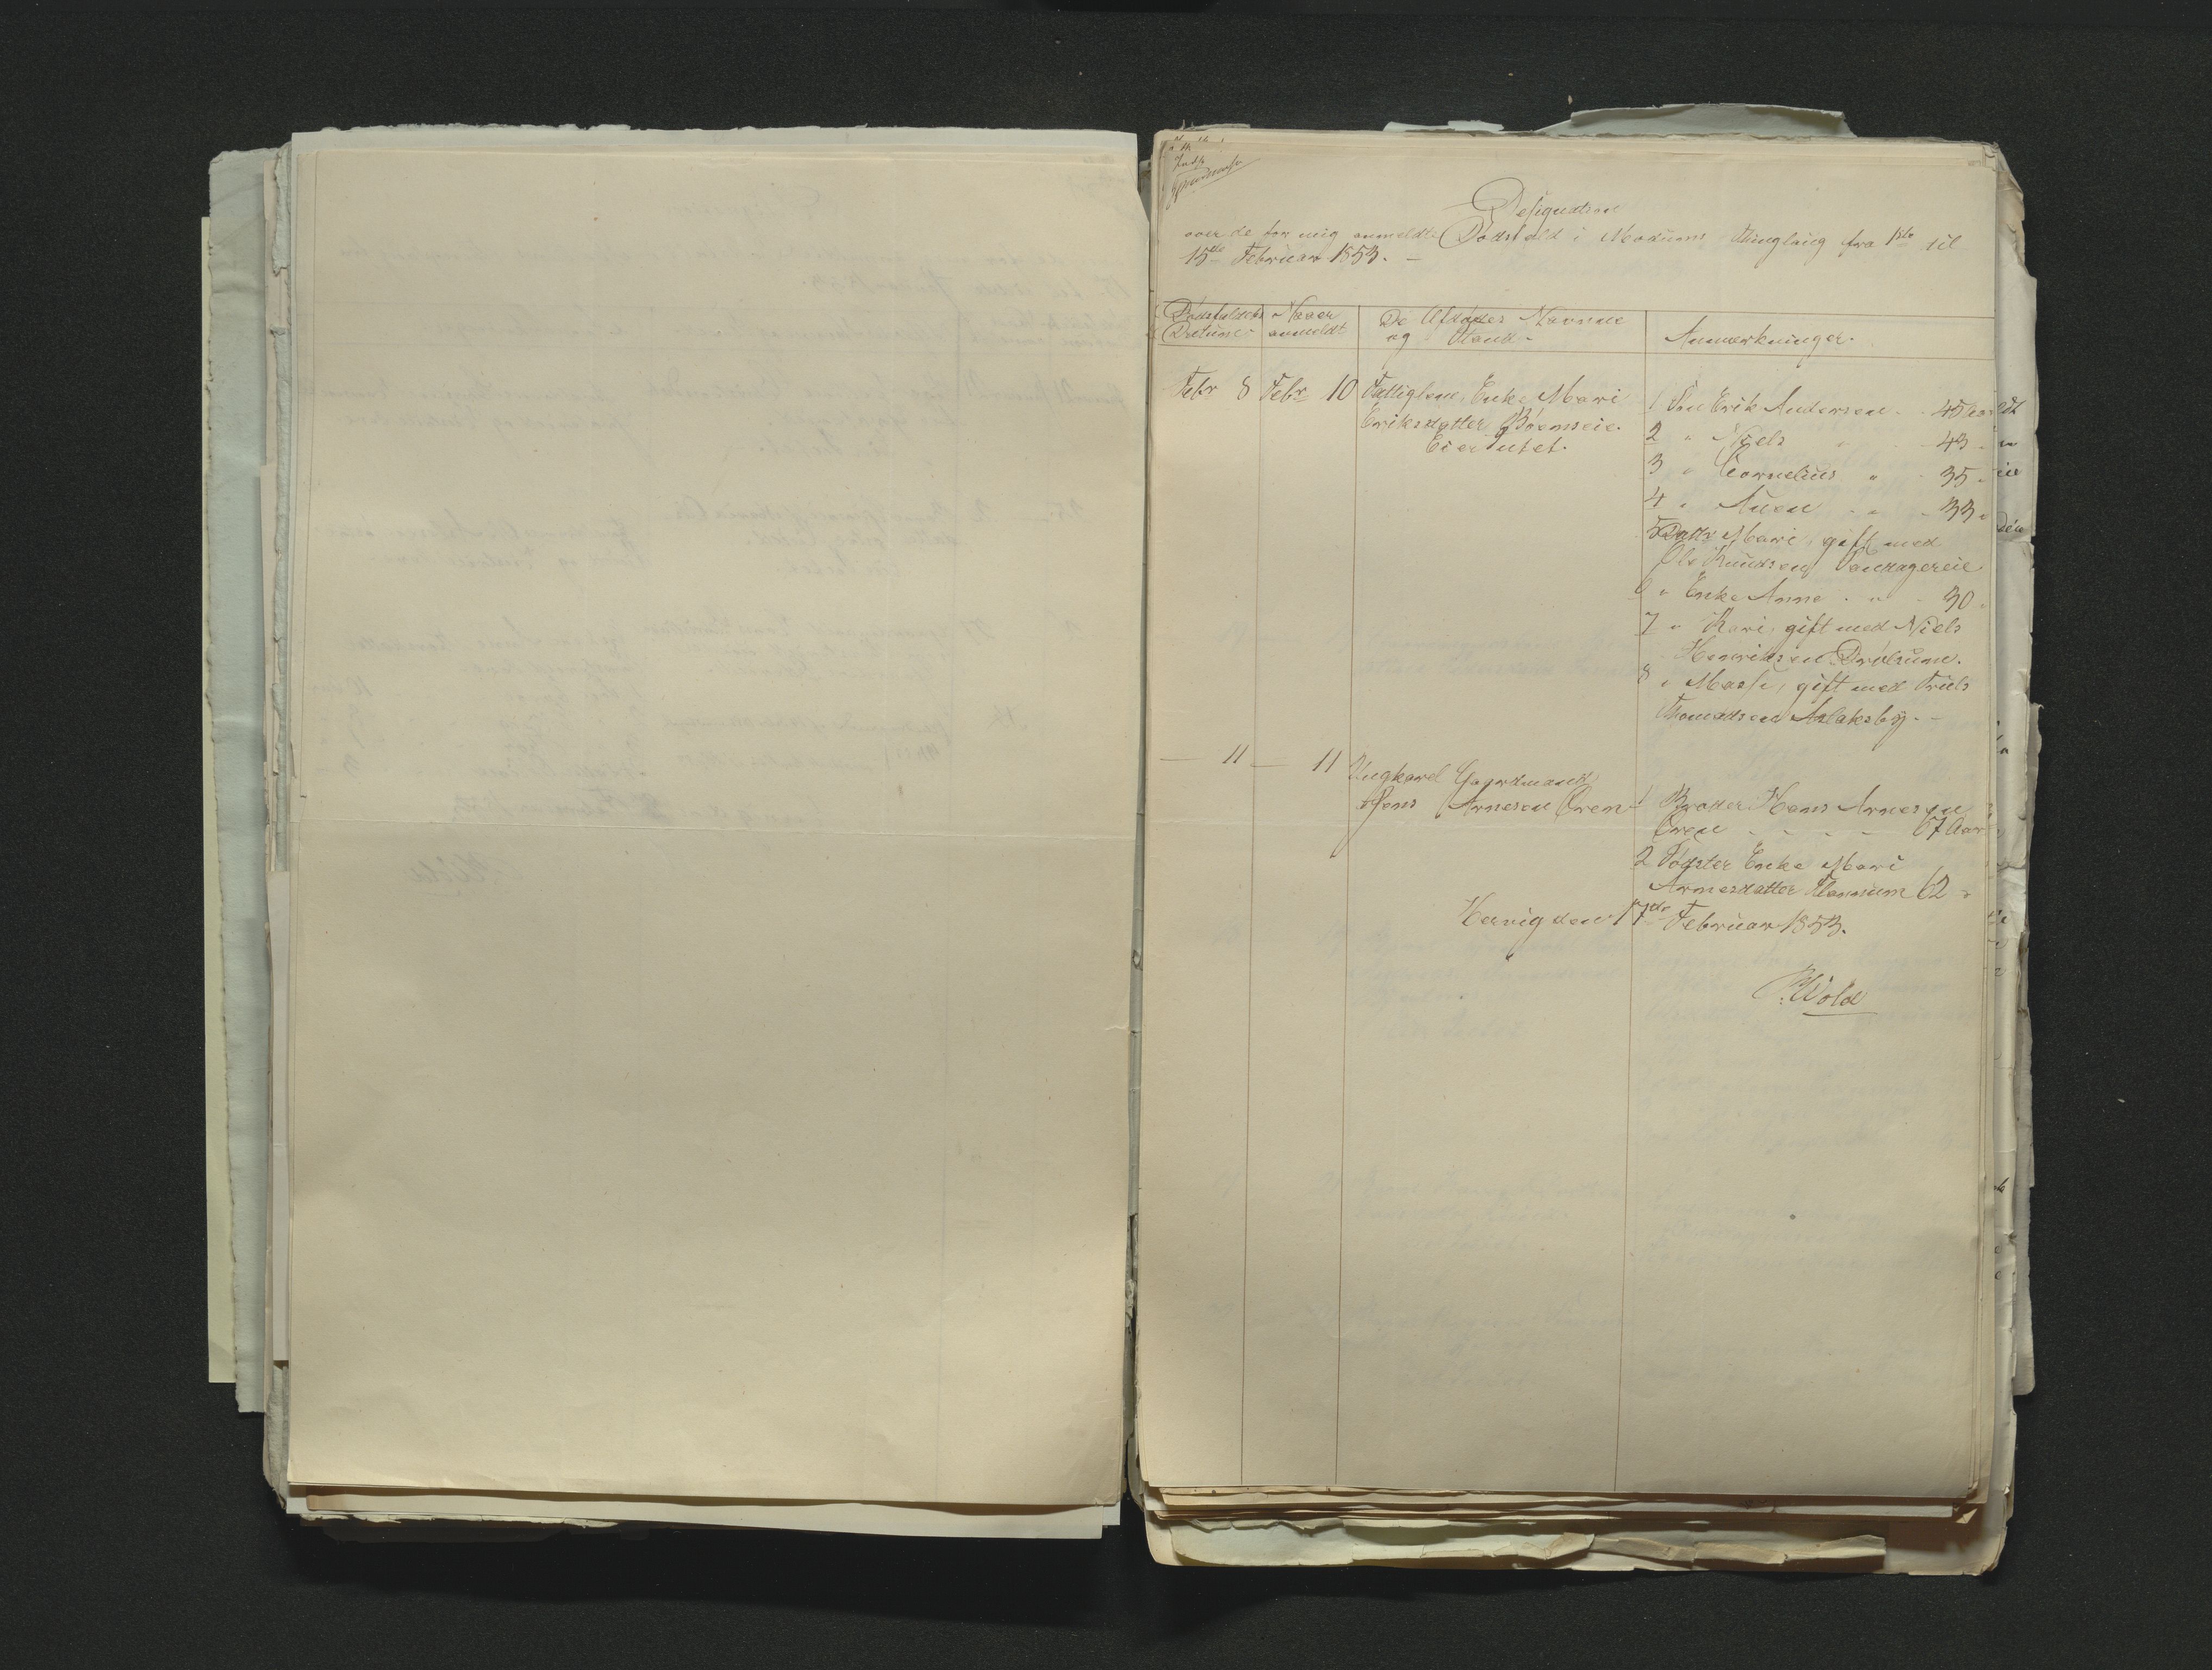 Designation
over de for mig anmeldte Dødsfald i Modums Thinglaug fra 1ste til
15de Februar 1853. -
Dødsfaldets Datum
Naar anmeldt
De Afdødes Navne og Stand -
Anmærkninger.
Febr 8 Febr 10 Fattiglem, Enke Mari
Eriksdatter Bøenseie.
Eier Intet.
1 Søn Erik Andersen - 45 Aar
2 " Niels " - 43 "
3 " Cornelius " - 35 "
4 " Anen " - 33 "
5 Datter Mari, gift med
Ole Knudsen
6 " Enke Anne - " - 30 "
7 " Kari, gift med Niels
Henriksen Drolsum.
8 " Marthe, gift med Truls
Thomassen Aslaksby. -
— 11 — 11 Ungkarl Gaardmand
Jens Arnesen Øren
1 Broder Hans Arnesen
Øren - - - - 67 Aar
2 Søster Enke Mari
Arnesdatter 62 "
Hervig den 17de Februar 1853.
Wold